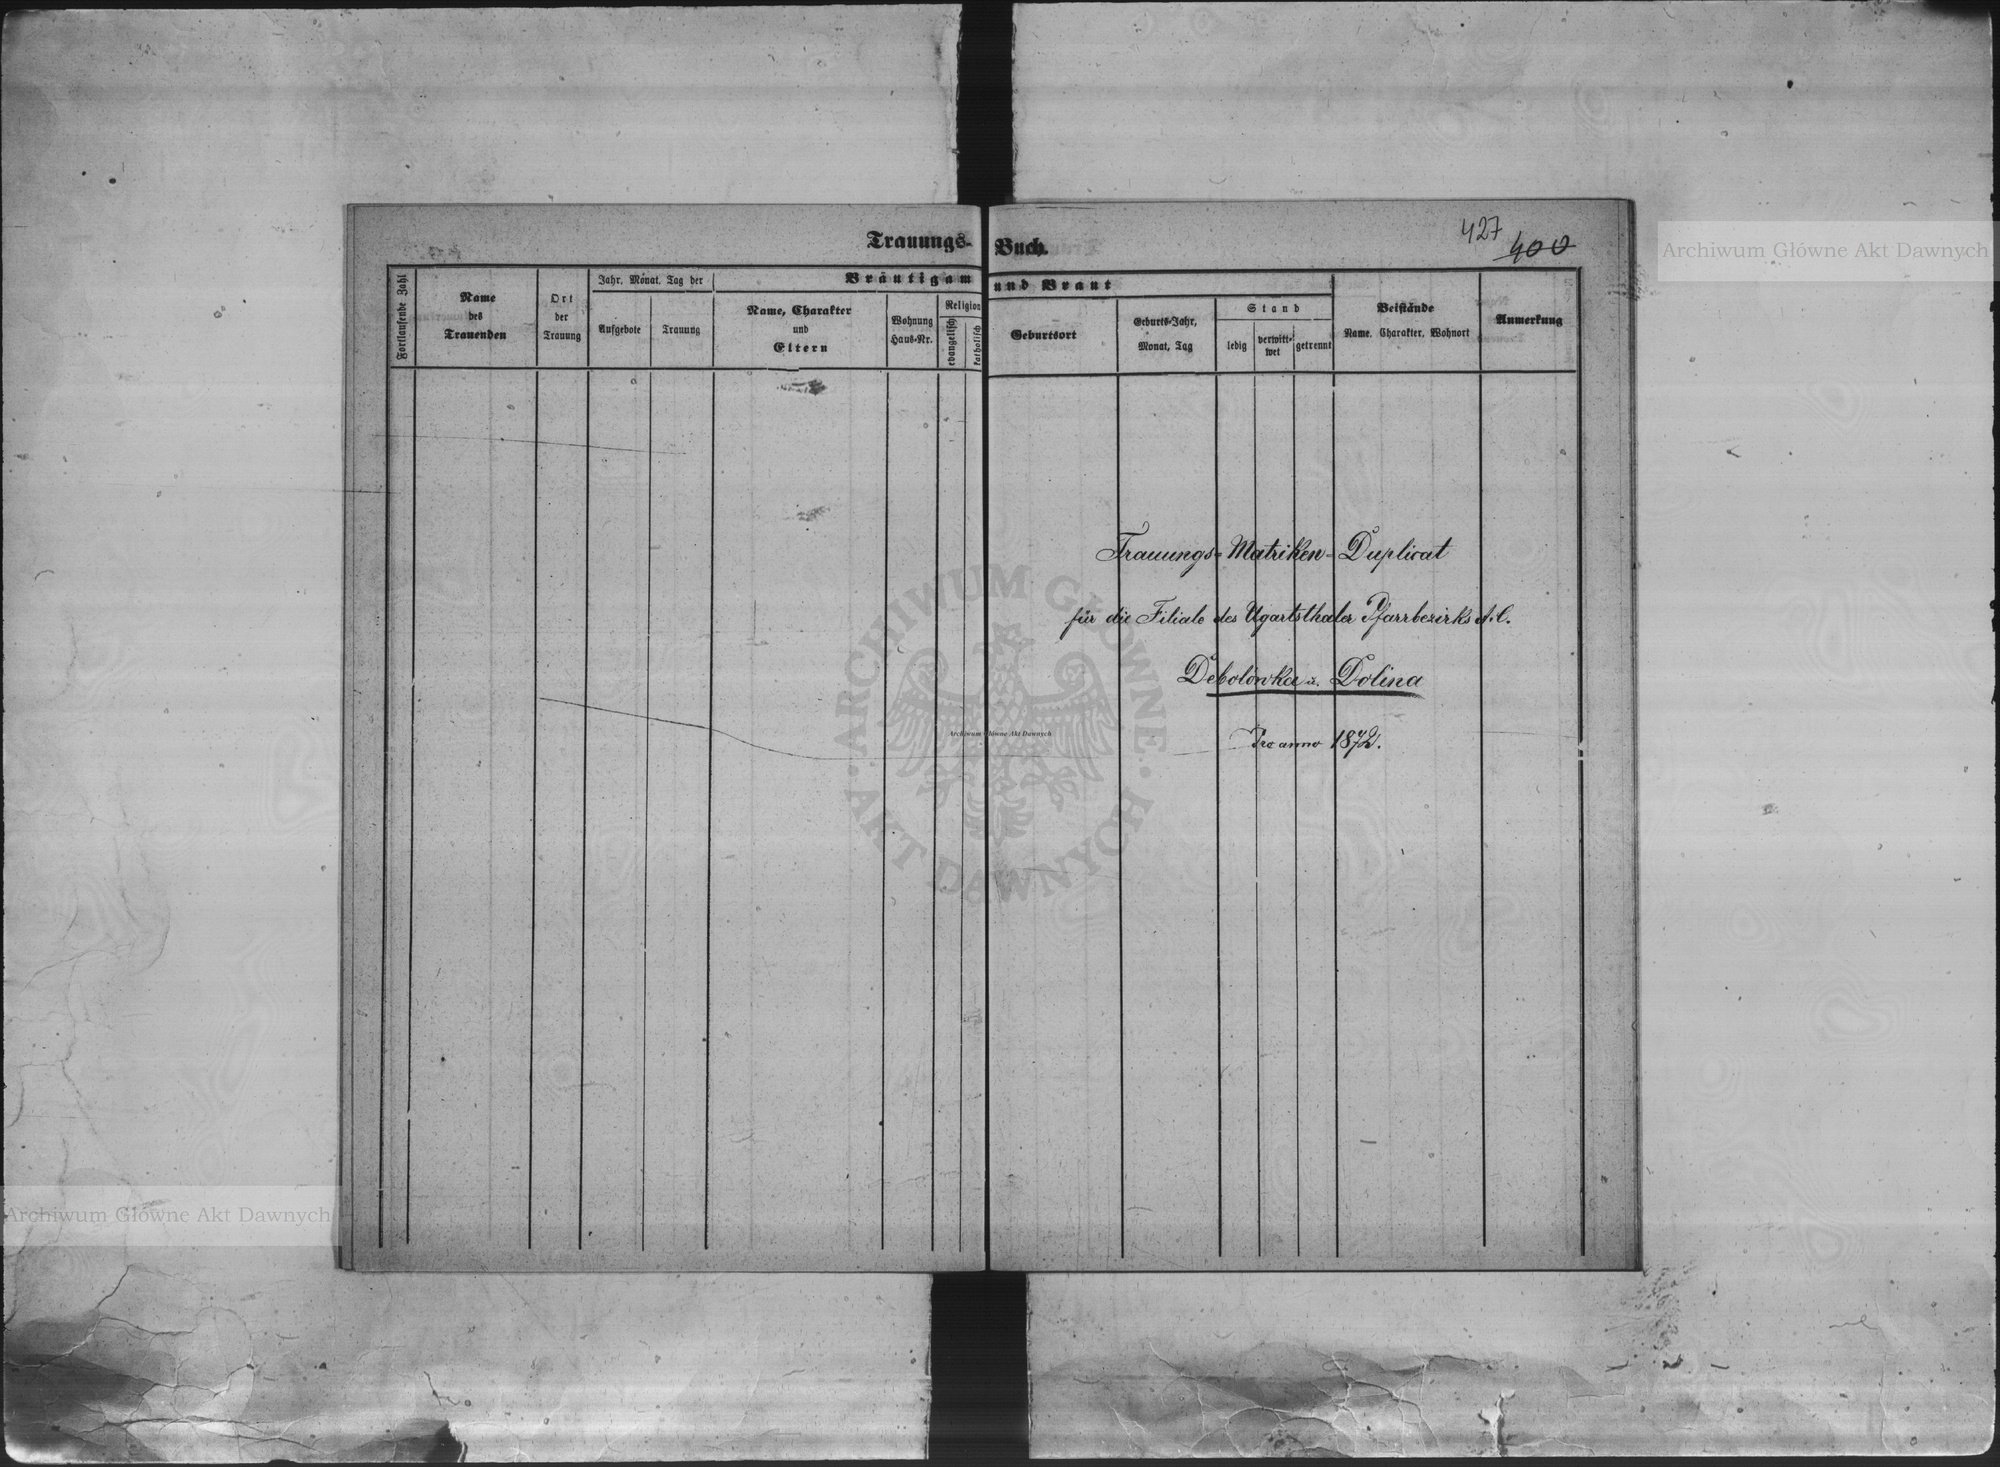 Trauungs-Buch.
427
400
Fortlaufende Zahl
Name
des
Trauenden
Ort
der
Trauung
Jahr, Monat, Tag der
Aufgebote
Trauung
Bräutigam und Braut
Name, Charakter
und
Eltern
Wohnung
Haus-Nr.
Religion
evangelisch
katholisch
Geburtsort
Geburts-Jahr,
Monat, Tag
Stand
ledig
verwitt-
wet
getrennt
Beistände
Name, Charakter, Wohnort
Anmerkung
Trauungs-Matriken-Duplicat
für die Filiale des Ugartsthaler Pfarrbezirks A.C.
Debolówka u. Dolina
Pro anno 1872.
Archiwum Główne Akt Dawnych
ARCHIWUM GŁÓWNE
· AKT DAWNYCH ·
Archiwum Główne Akt Dawnych
Archiwum Główne Akt Dawnych